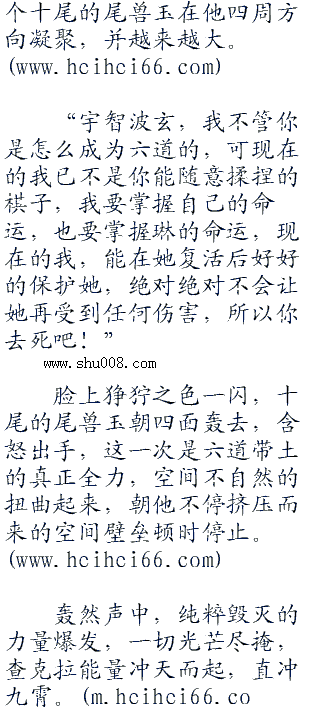 个十尾的尾兽玉在他四周方
向凝聚，并越来越大。
(www.hcihci66.com)
“宇智波玄，我不管你
是怎么成为六道的，可现在
的我已不是你能随意揉捏的
棋子，我要掌握自己的命
运，也要掌握琳的命运，现
在的我，能在她复活后好好
的保护她，绝对绝对不会让
她再受到任何伤害，所以你
去死吧！”
www.shu008.com
脸上狰狞之色一闪，十
尾的尾兽玉朝四面轰去，含
怒出手，这一次是六道带土
的真正全力，空间不自然的
扭曲起来，朝他不停挤压而
来的空间壁垒顿时停止。
(www.hcihci66.com)
轰然声中，纯粹毁灭的
力量爆发，一切光芒尽掩，
查克拉能量冲天而起，直冲
九霄。(m.hcihci66.co